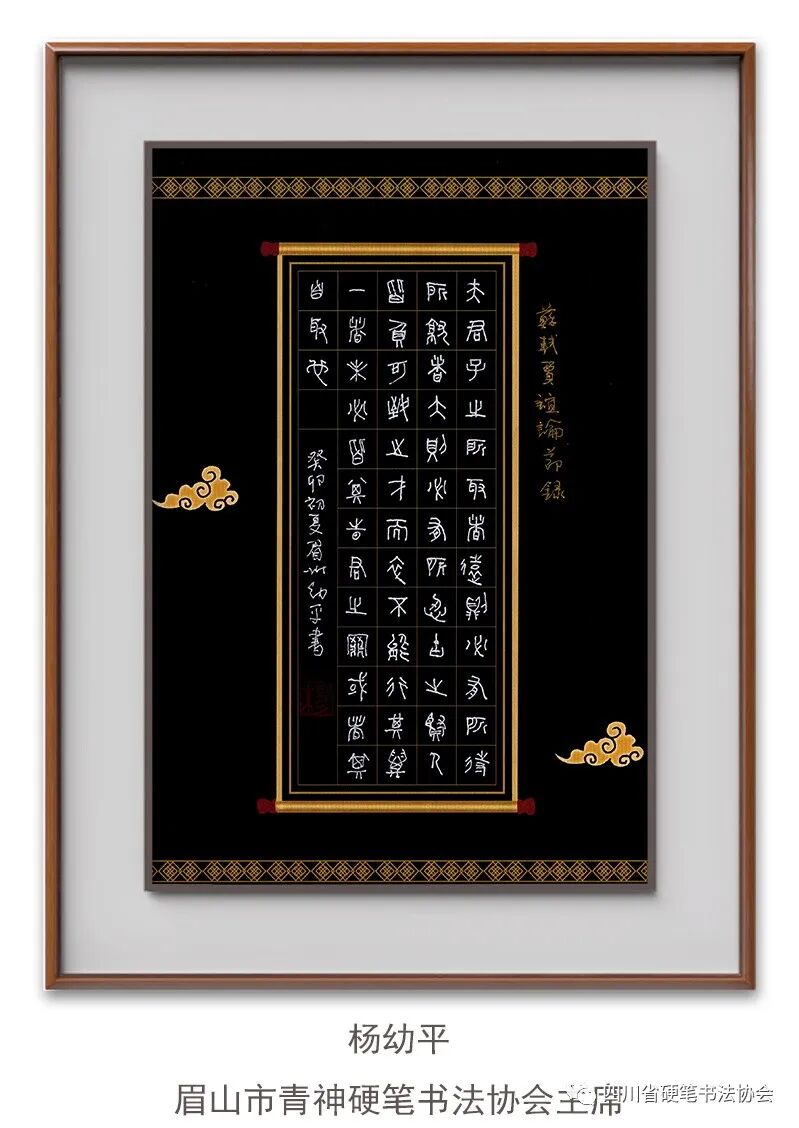 蘇軾賈誼論節錄
夫君子之所取者遠則必有所待
所就者大則必有所忍古之賢人
皆負可致之才而卒不能行其萬
一者未必皆其時君之罪或者其
自取也
癸卯初夏眉州幼平書
杨幼平
眉山市青神硬笔书法协会主席
四川省硬笔书法协会